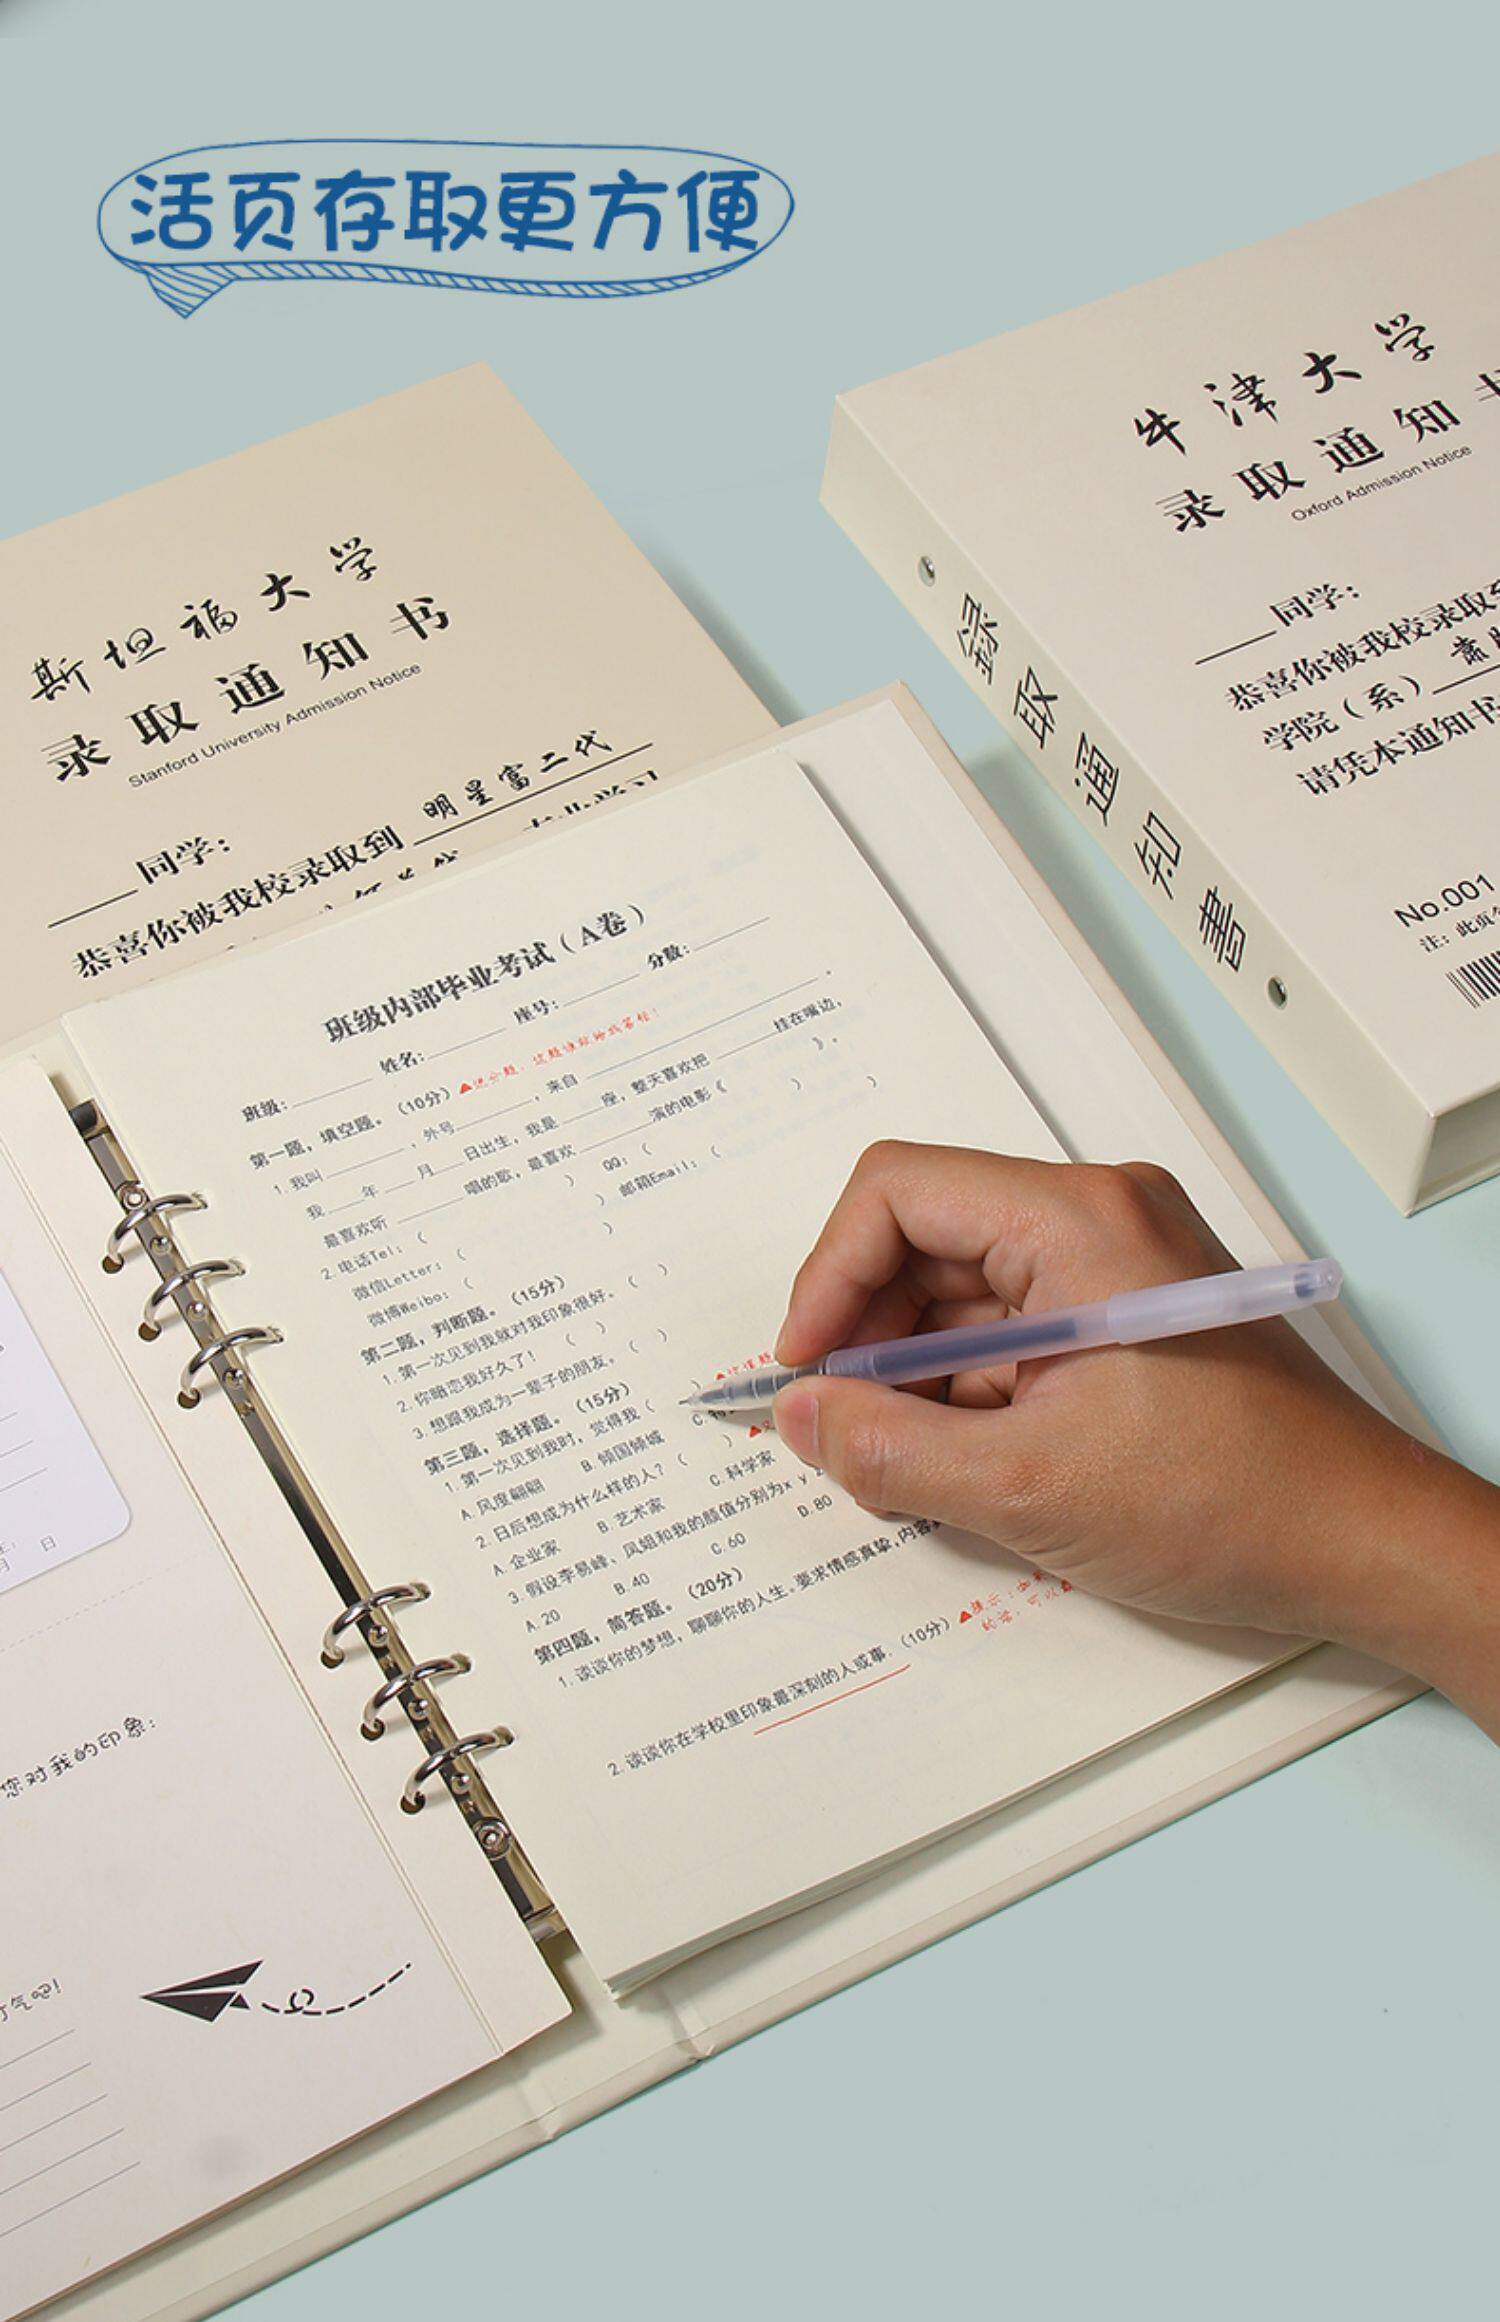 活页存取更方便
斯坦福大学
录取通知书
Stanford University Admission Notice
同学：
恭喜你被我校录取到 明星富二代
牛津大学
录取通知书
Oxford Admission Notice
同学：
恭喜你被我校录取到
学院（系）
请凭本通知书
No.001
录取通知書
班级内部毕业考试（A卷）
班级： 姓名： 座号： 分数：
第一题，填空题。（10分） ▲送分题，这题谁敢给我答错！
1.我叫 ，外号 ，来自 。
我 年 月 日出生，我是 座，整天喜欢把 挂在嘴边，
最喜欢听 唱的歌，最喜欢 演的电影《 》。
2.电话Tel：（ ） QQ：（ ）
微信Letter：（ ） 邮箱Email：（ ）
微博Weibo：（ ）
第二题，判断题。（15分）
1.第一次见到我就对我印象很好。（ ）
2.你暗恋我好久了！（ ）
3.想跟我成为一辈子的朋友。（ ）
第三题，选择题。（15分）
1.第一次见到我时，觉得我（ ）
A.风度翩翩 B.倾国倾城 C.
2.日后想成为什么样的人？（ ）
A.企业家 B.艺术家 C.科学家
3.假设李易峰、凤姐和我的颜值分别为x y
A.20 B.40 C.60 D.80
第四题，简答题。（20分）
1.谈谈你的梦想，聊聊你的人生。要求情感真挚，内容
2.谈谈你在学校里印象最深刻的人或事.（10分） ▲提示：如果
的话，可以
您对我的印象：
气吧！
月 日